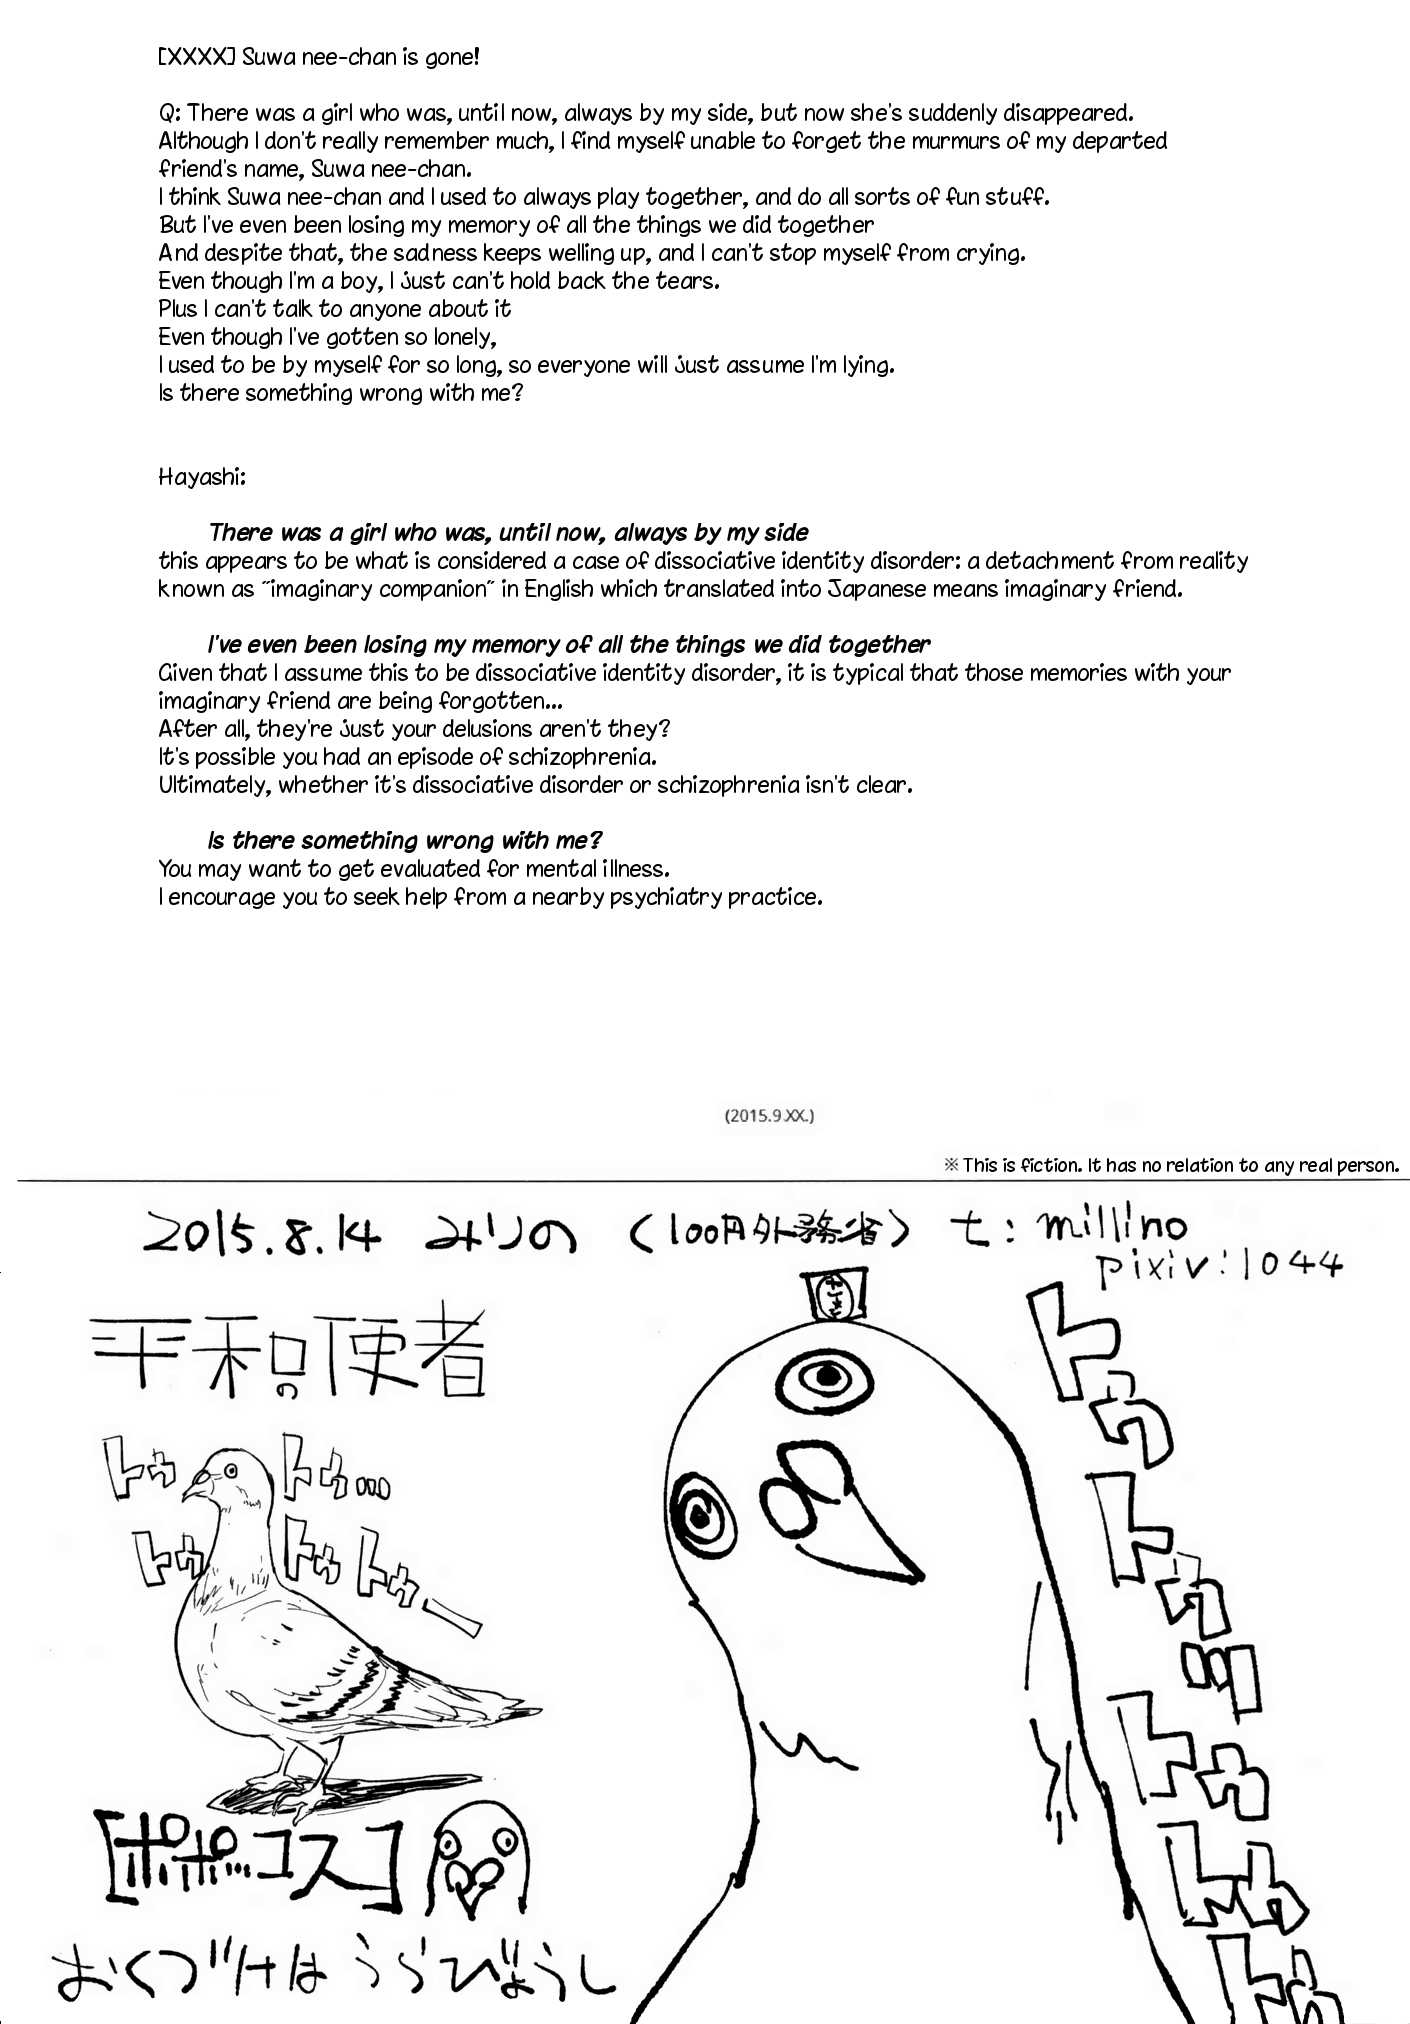 [XXXX] Suwa nee-chan is gone!
Q: There was a girl who was, until now, always by my side, but now she's suddenly disappeared.
Although I don't really remember much, I find myself unable to forget the murmurs of my departed
friend's name, Suwa nee-chan.
I think Suwa nee-chan and I used to always play together, and do all sorts of fun stuff.
But I've even been losing my memory of all the things we did together
And despite that, the sadness keeps welling up, and I can't stop myself from crying.
Even though I'm a boy, I just can't hold back the tears.
Plus I can't talk to anyone about it
Even though I've gotten so lonely,
I used to be by myself for so long, so everyone will just assume I'm lying.
Is there something wrong with me?
Hayashi:
There was a girl who was, until now, always by my side
this appears to be what is considered a case of dissociative identity disorder: a detachment from reality
known as ˝imaginary companion˝ in English which translated into Japanese means imaginary friend.
I've even been losing my memory of all the things we did together
Given that I assume this to be dissociative identity disorder, it is typical that those memories with your
imaginary friend are being forgotten...
After all, they're just your delusions aren't they?
It's possible you had an episode of schizophrenia.
Ultimately, whether it's dissociative disorder or schizophrenia isn't clear.
Is there something wrong with me?
You may want to get evaluated for mental illness.
I encourage you to seek help from a nearby psychiatry practice.
(2015.9.XX.)
※This is fiction. It has no relation to any real person.
2015.8.14 みりの (100円外務省) t: millino
pixiv:1044
平和の使者
トゥ トゥ…
トゥ トゥ トゥー
[ポポ…コス]
おくづけは うらびょうし
トゥ
トゥ…
トゥ
トゥ
トゥ